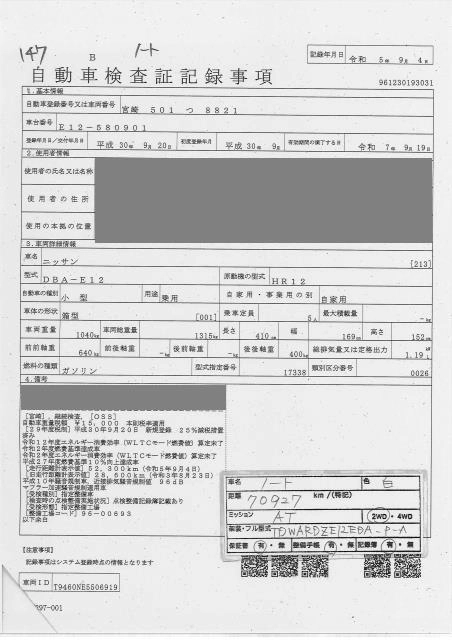 147 B ノート
記録年月日 令和 5年 9月 4日
自動車検査証記録事項
961230193031
1.基本情報
自動車登録番号又は車両番号 宮崎 501 つ 8821
車台番号 E12-580901
登録年月日/交付年月日 平成 30年 9月 20日 初度登録年月 平成 30年 9月 有効期間の満了する日 令和 7年 9月 19日
2.使用者情報
使用者の氏名又は名称
使用者の住所
使用の本拠の位置
3.車両詳細情報
車名 ニッサン [213]
型式 DBA-E12 原動機の型式 HR12
自動車の種別 小型 用途 乗用 自家用・事業用の別 自家用
車体の形状 箱型 [001] 乗車定員 5人 最大積載量 -kg
車両重量 1040kg 車両総重量 1315kg 長さ 410cm 幅 169cm 高さ 152cm
前前軸重 640kg 前後軸重 -kg 後前軸重 -kg 後後軸重 400kg 総排気量又は定格出力 1.19 L
燃料の種類 ガソリン 型式指定番号 17338 類別区分番号 0026
4.備考
[宮崎],継続検査,[OSS]
自動車重量税額 ¥15,000 本則税率適用
[29年度税制]平成30年9月20日 新規登録 25%減税措置
済み
令和12年度エネルギー消費効率(WLTCモード燃費値)算定未了
令和2年度燃費基準達成車
令和2年度エネルギー消費効率(WLTCモード燃費値)算定未了
平成27年度燃費基準10%向上達成車
[走行距離計表示値]52,300km(令和5年9月4日)
[旧走行距離計表示値]28,600km(令和3年8月23日)
平成10年騒音規制車、近接排気騒音規制値 96dB
マフラー加速騒音規制適用車
[受検種別]指定整備車
[検査時の点検整備実施状況]点検整備記録簿記載あり
[受検形態]指定整備工場
[整備工場コード]96-00693
以下余白
車名 ノート 色 白
距離 70927 km /(特記)
ミッション AT 2WD・4WD
架装・フル型式
保証書 有・無 整備手帳 有・無 記録簿 有・無
【注意事項】
記録事項はシステム登録時点の情報となります
車両ID T9460NE5506919
397-001